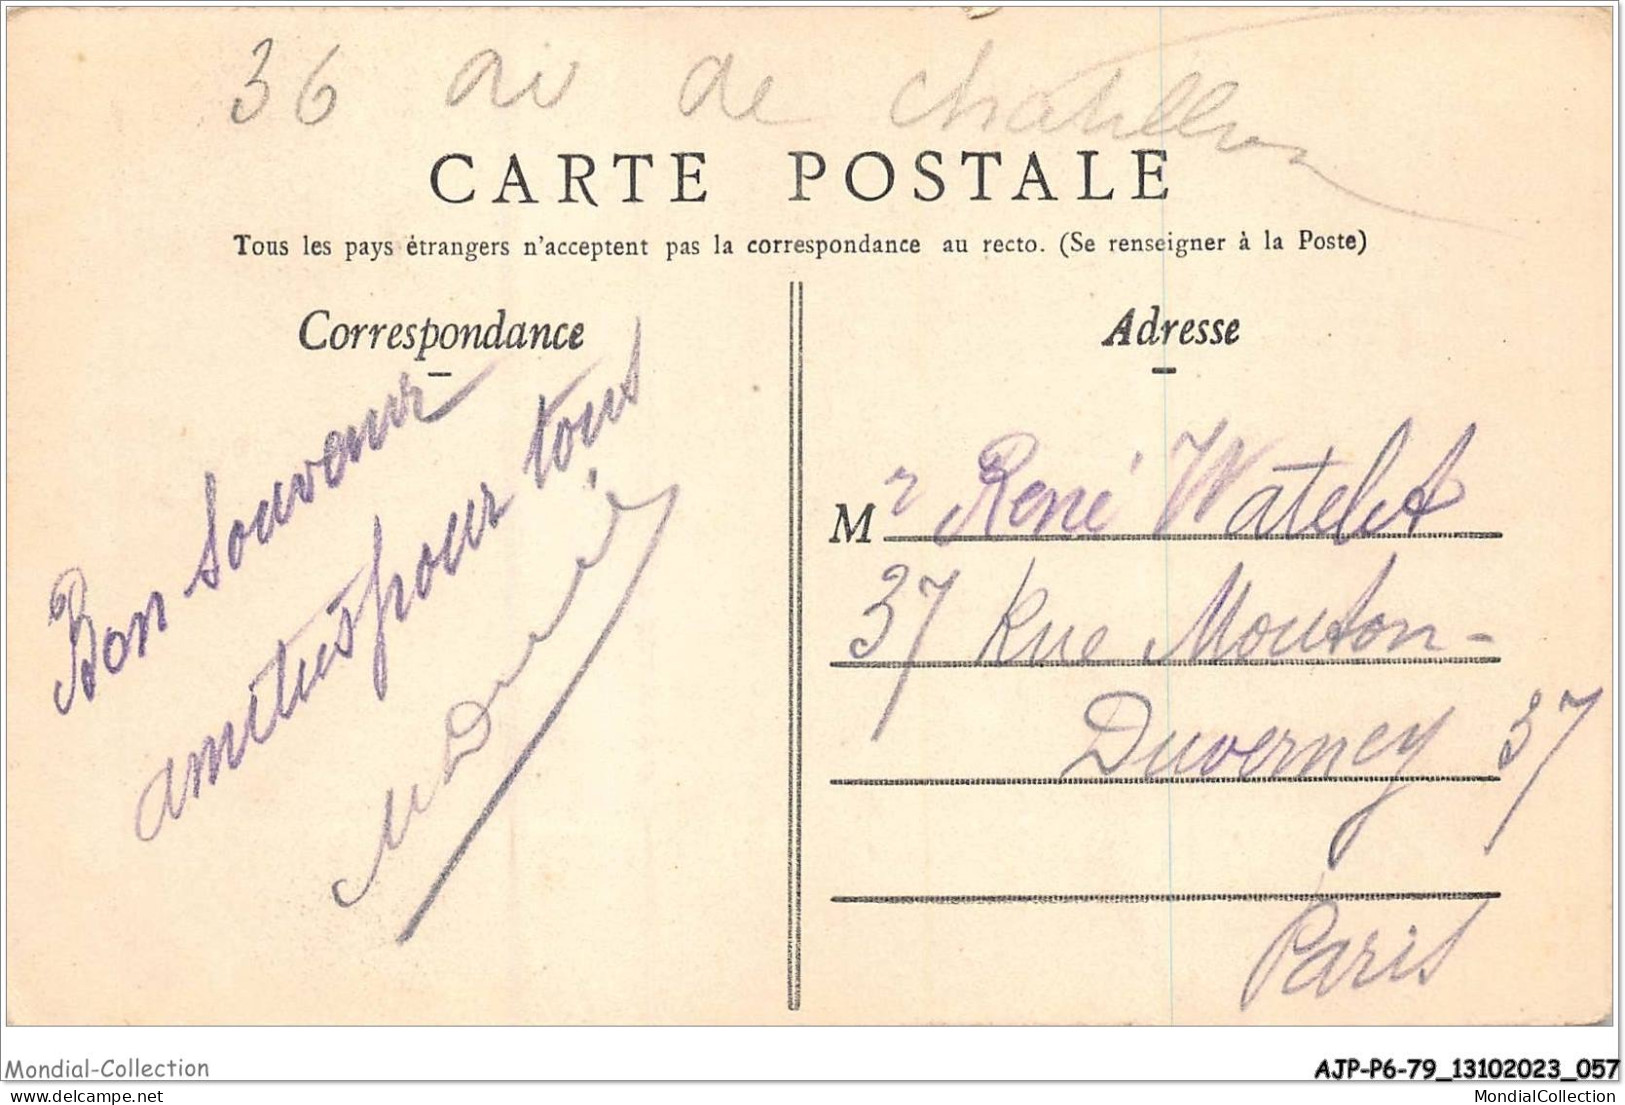 36 av de Chatillon
CARTE POSTALE
Tous les pays étrangers n'acceptent pas la correspondance au recto. (Se renseigner à la Poste)
Correspondance
Bon souvenir
amitiés pour tous
Adresse
Mr René Watelet
37 Rue Mouton-
Duverney 37
Paris
Mondial-Collection
AJP-P6-79_13102023_057
MondialCollection.com
MondialCollection